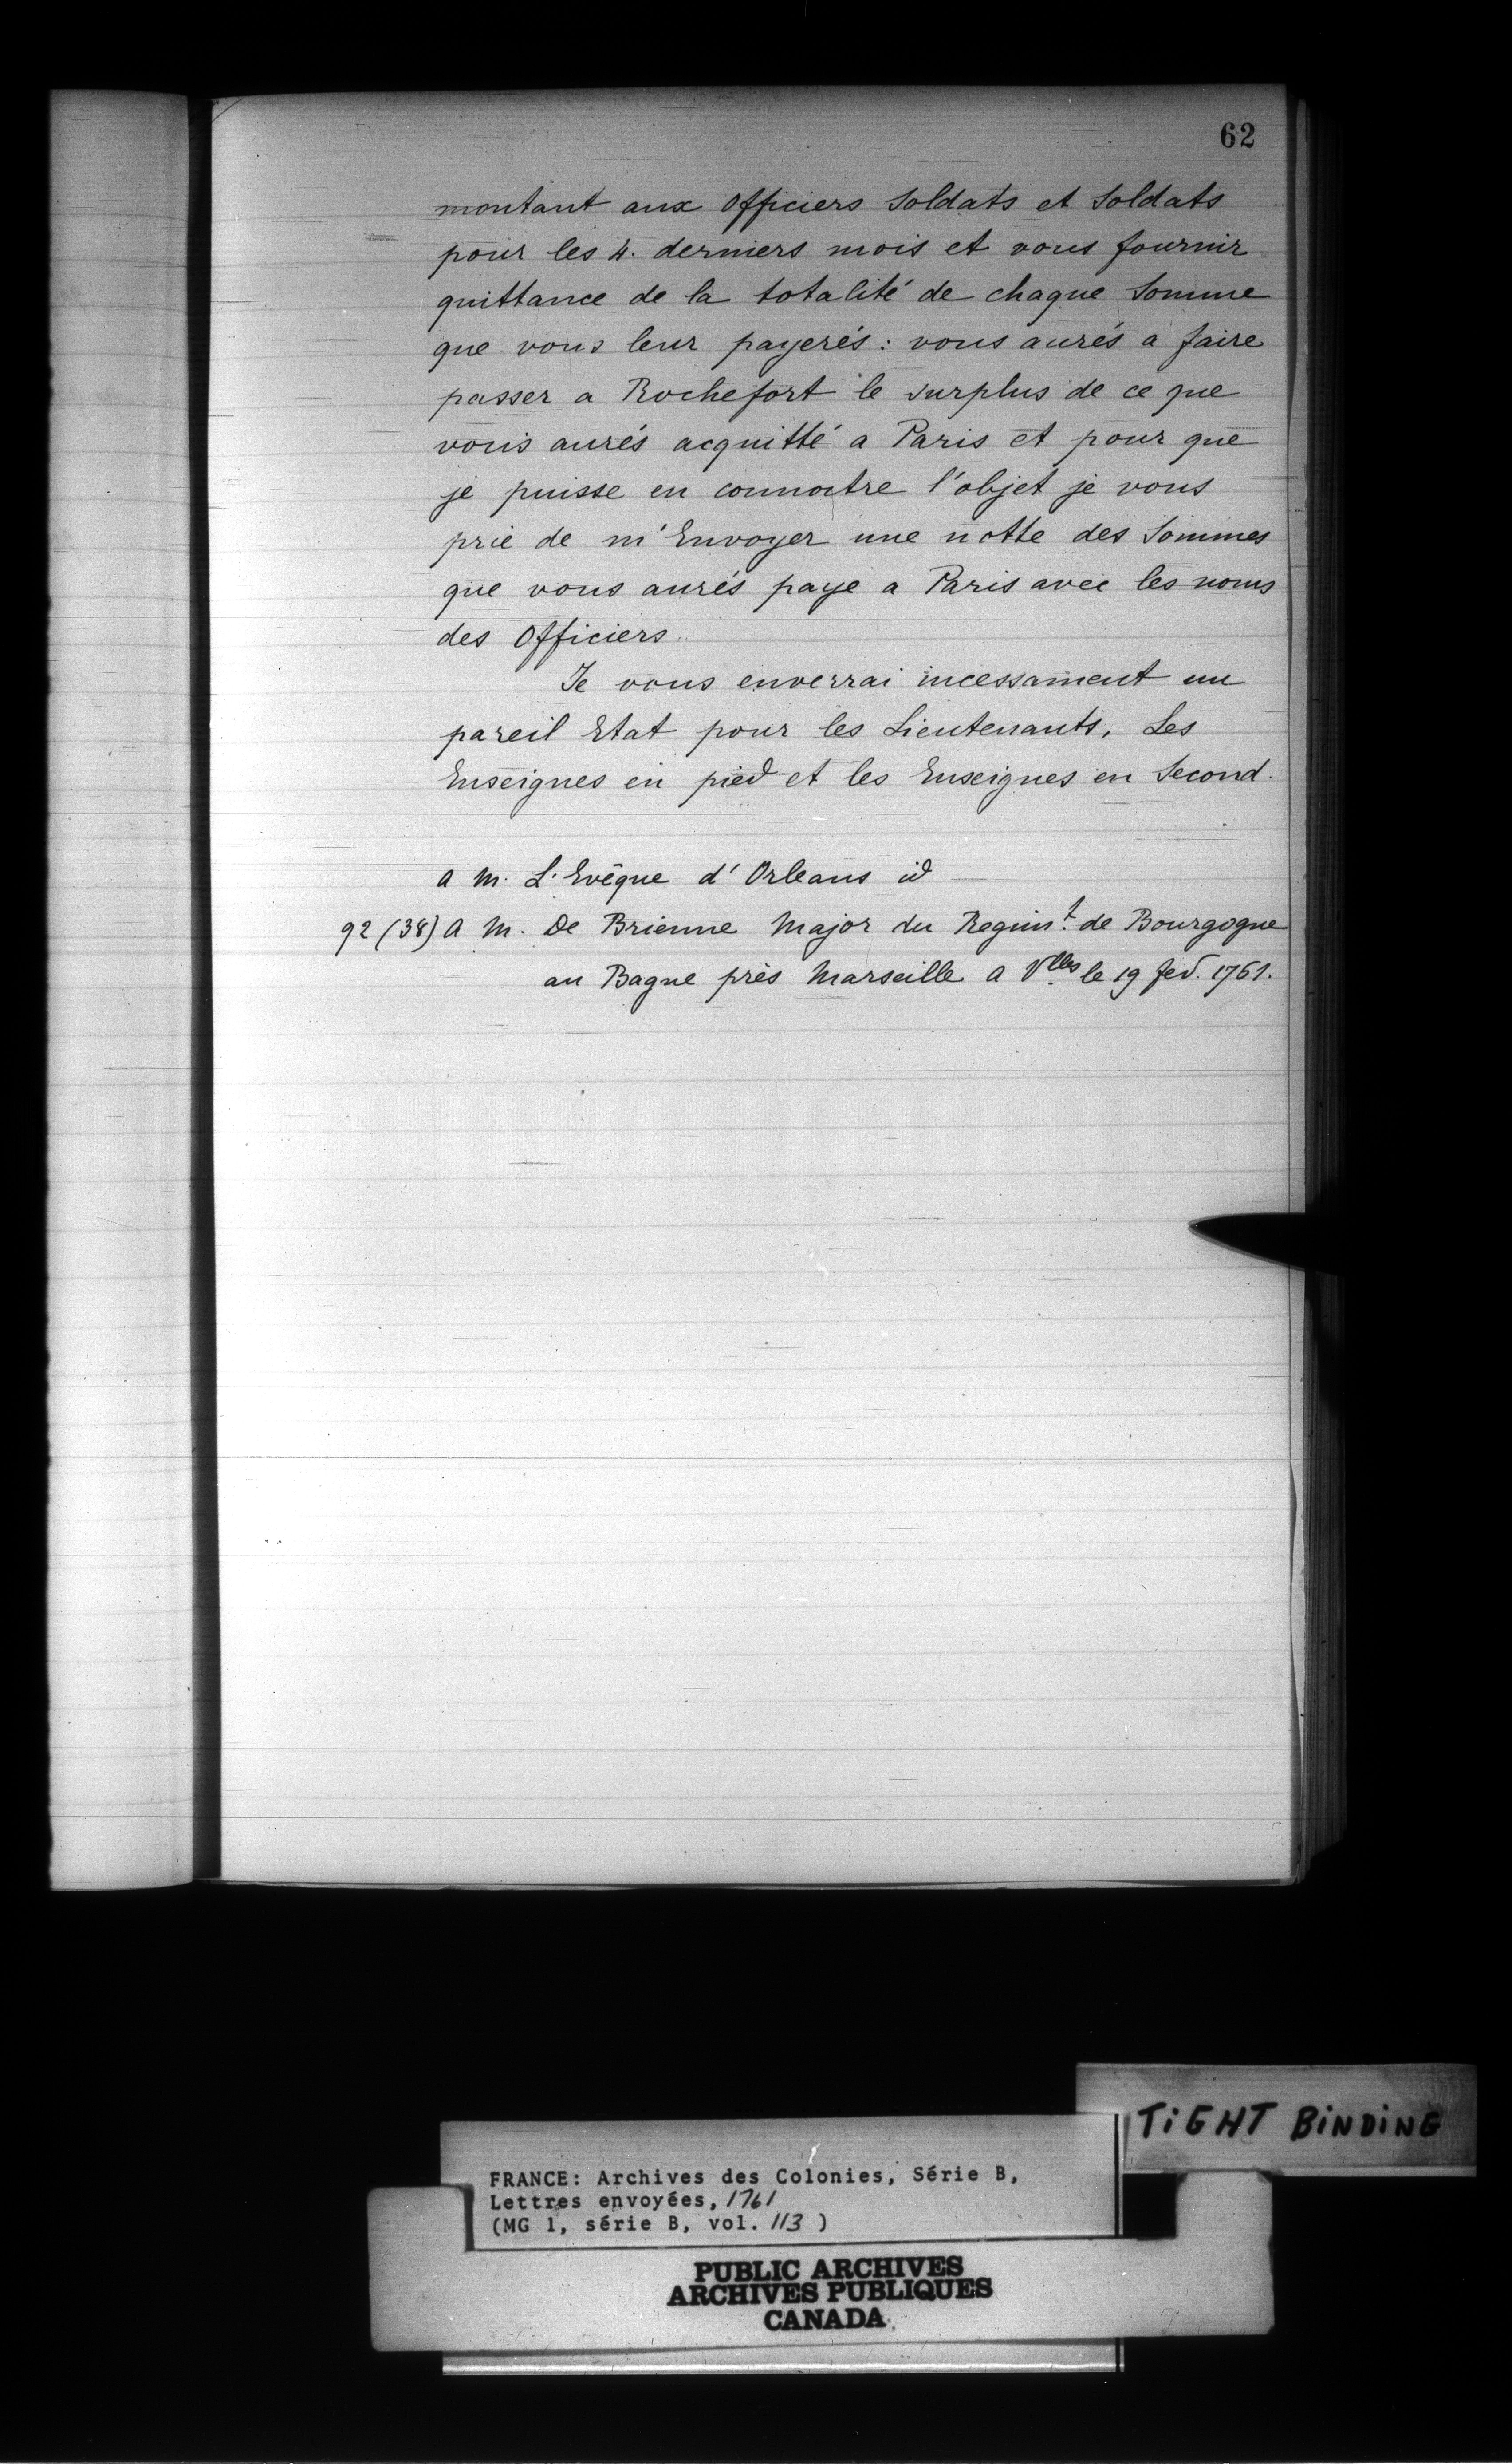 62
montant aux Officiers Soldats et Soldats
pour les 4. derniers mois et vous fournir
quittance de la totalité de chaque Somme
que vous leur payerés : vous aurés a faire
passer a Rochefort le surplus de ce que
vous aurés acquitté a Paris et pour que
je puisse en connoitre l'objet je vous
prie de m'Envoyer une notte des Sommes
que vous aurés paye a Paris avec les noms
des Officiers.
Je vous enverrai incessament un
pareil Etat pour les Lieutenants, Les
Enseignes en pied et les Enseignes en Second.
a M. L'Evêque d'Orleans id
92 (38) A M. De Brienne Major du Regimt. de Bourgogne
au Bagne près Marseille a Vlles le 19 fev. 1761.
TiGHT BiNDiNG
FRANCE: Archives des Colonies, Série B,
Lettres envoyées, 1761
(MG 1, série B, vol. 113 )
PUBLIC ARCHIVES
ARCHIVES PUBLIQUES
CANADA